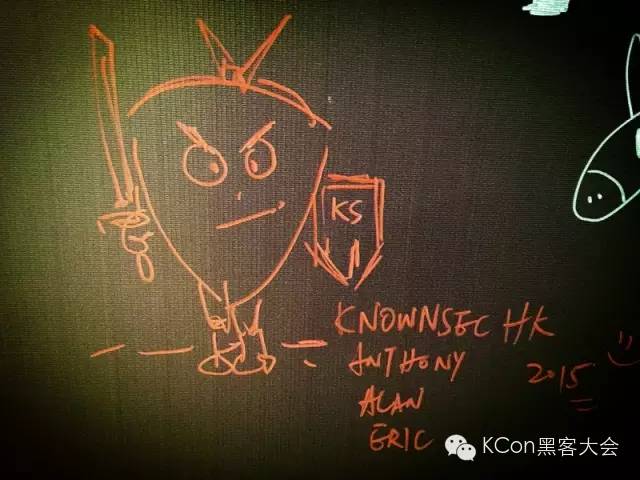 KS
KNOWNSEC HK
ANTHONY
ALAN
ERIC
2015
KCon黑客大会